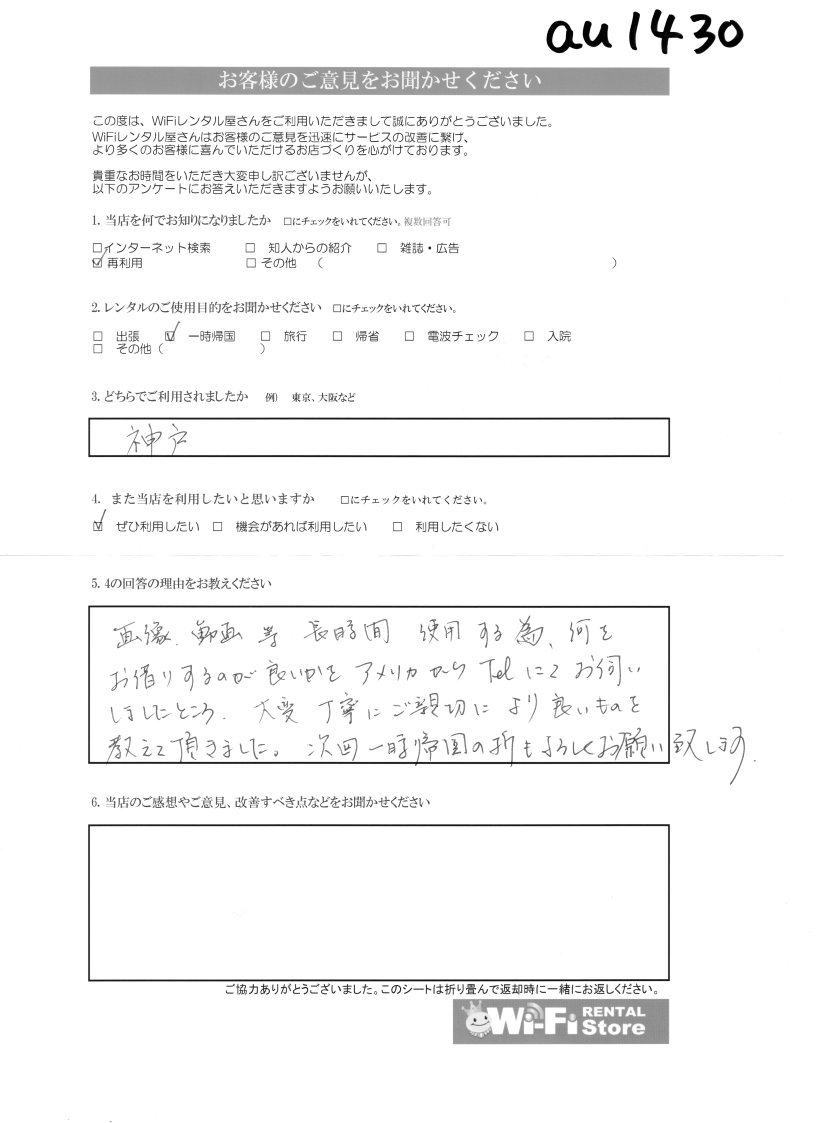 au1430
お客様のご意見をお聞かせください
この度は、WiFiレンタル屋さんをご利用いただきまして誠にありがとうございました。
WiFiレンタル屋さんはお客様のご意見を迅速にサービスの改善に繋げ、
より多くのお客様に喜んでいただけるお店づくりを心がけております。
貴重なお時間をいただき大変申し訳ございませんが、
以下のアンケートにお答えいただきますようお願いいたします。
1. 当店を何でお知りになりましたか □にチェックをいれてください。複数回答可
□インターネット検索 □ 知人からの紹介 □ 雑誌・広告
☑ 再利用 □ その他 （ ）
2. レンタルのご使用目的をお聞かせください □にチェックをいれてください。
□ 出張 ☑ 一時帰国 □ 旅行 □ 帰省 □ 電波チェック □ 入院
□ その他（ ）
3. どちらでご利用されましたか 例） 東京、大阪など
神戸
4. また当店を利用したいと思いますか □にチェックをいれてください。
☑ ぜひ利用したい □ 機会があれば利用したい □ 利用したくない
5. 4の回答の理由をお教えください
画像、動画 等 長時間 使用する為、何を
お借りするのが良いかを アメリカから Telにて お伺い
しましたところ、大変 丁寧に ご親切に より良いものを
教えて頂きました。次回 一時帰国の折もよろしくお願い致します。
6. 当店のご感想やご意見、改善すべき点などをお聞かせください
ご協力ありがとうございました。このシートは折り畳んで返却時に一緒にお返しください。
Wi-Fi RENTAL Store